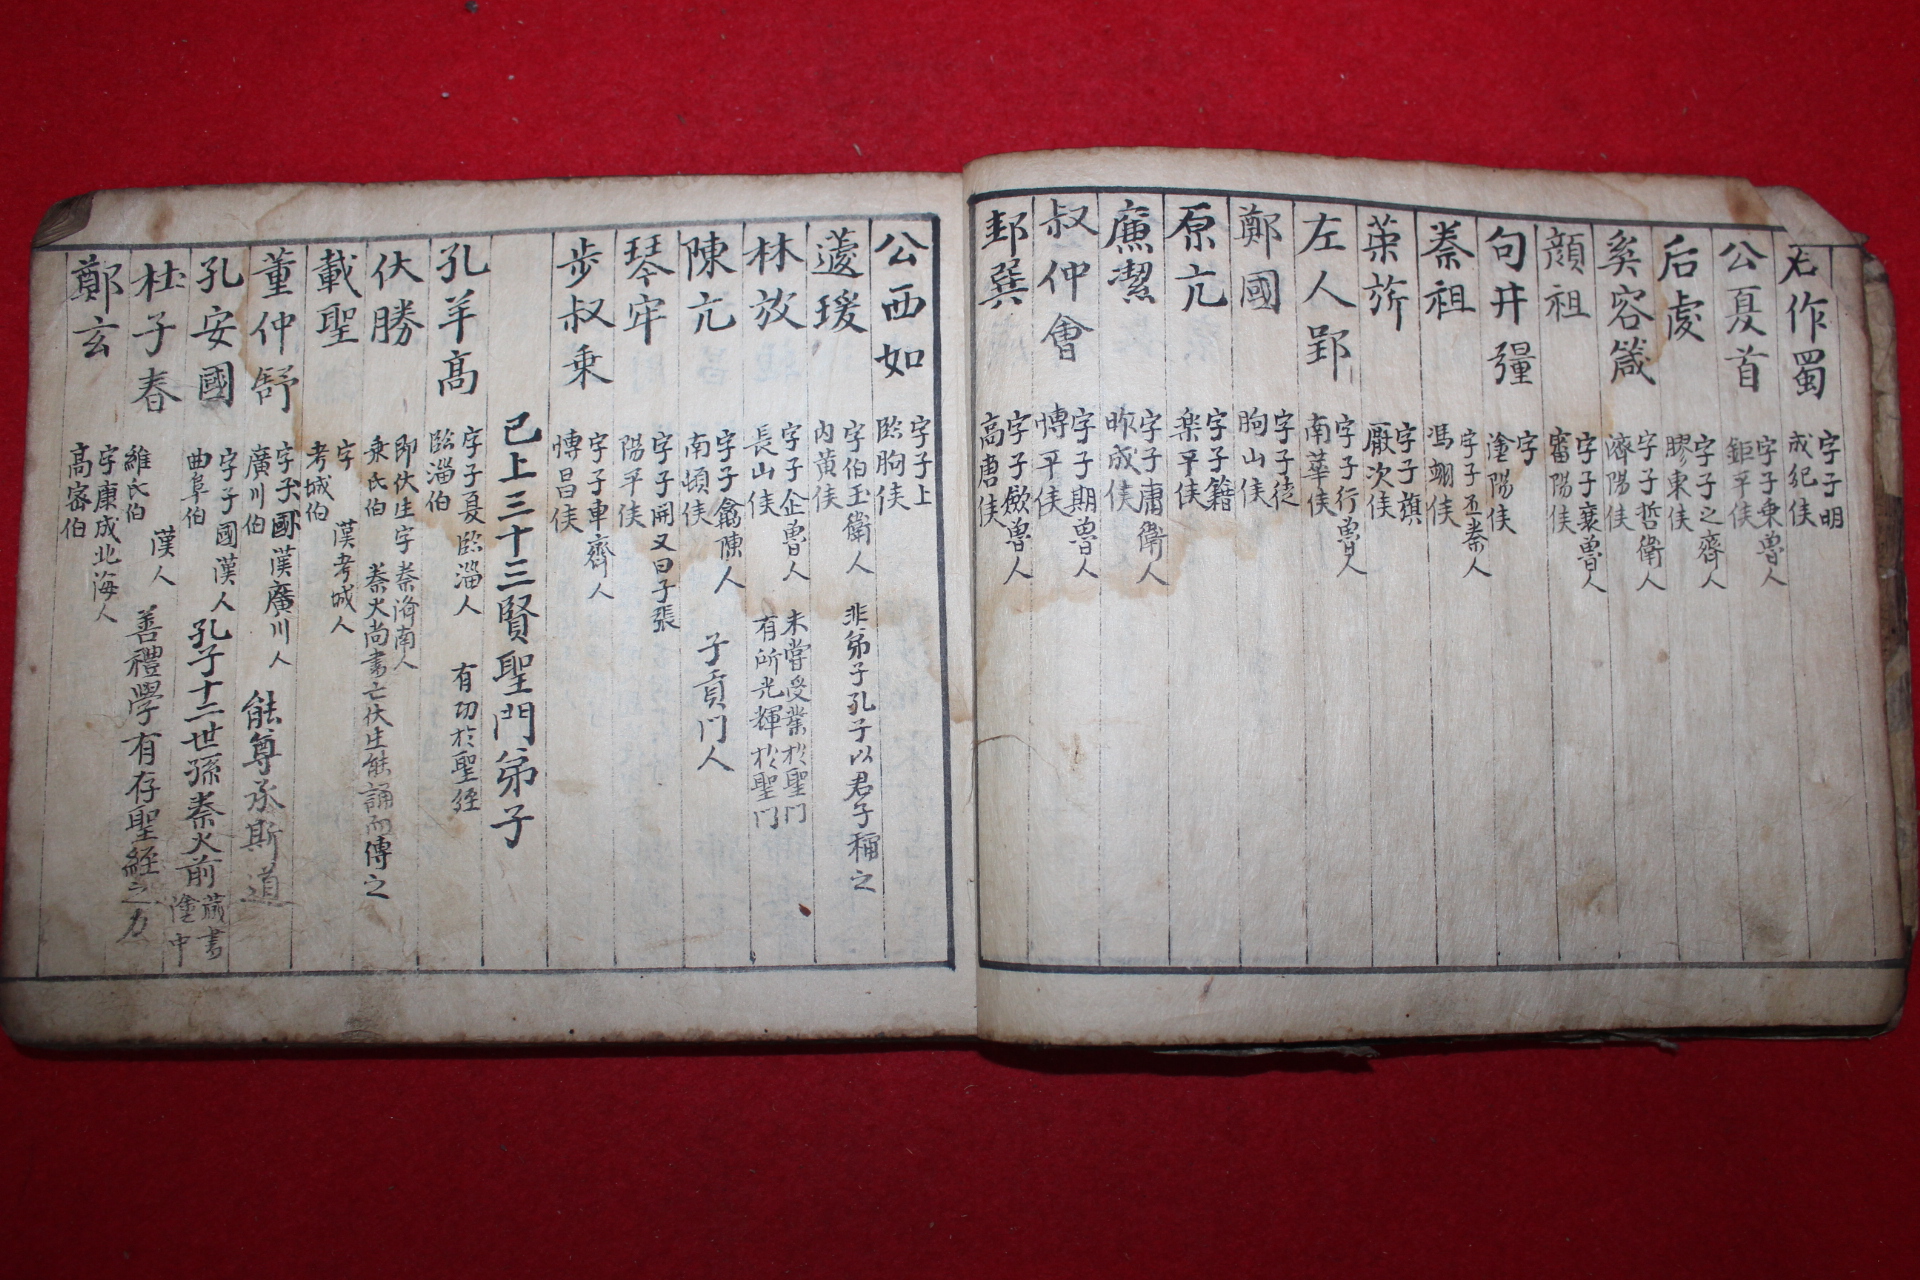 石作蜀 字子明 成紀侯
公夏首 字子乗魯人 鉅平侯
后處 字子之齊人 膠東侯
奚容箴 字子哲衛人 濟陽侯
顔祖 字子襄魯人 富陽侯
句井彊 字 塗陽侯
秦祖 字子丕秦人 馮翊侯
榮旂 字子旗 厭次侯
左人郢 字子行魯人 南華侯
鄭國 字子徒 朐山侯
原亢 字子籍 楽平侯
廉潔 字子庸衛人 昨成侯
叔仲會 字子期魯人 博平侯
邽巽 字子歛魯人 高唐侯
公西如 字子上 臨朐侯
蘧瑗 字伯玉衛人 内黄侯 非弟子孔子以君子稱之
林放 字子企魯人 長山侯 未嘗受業於聖門 有所光輝於聖門
陳亢 字子禽陳人 南頓侯 子貢門人
琴牢 字子開又曰子張 陽平侯
步叔乗 字子車齊人 博昌侯
已上三十三賢聖門弟子
孔羊高 字子夏臨淄人 臨淄伯 有功於聖経
伏勝 即伏生字 秦濟南人 乗氏伯 秦火尚書亡伏生能誦而傳之
載聖 字 漢考城人 考城伯
董仲舒 字子國漢廣川人 廣川伯 能尊承斯道
孔安國 字子國漢人 曲阜伯 孔子十二世孫秦火前蔵書塗中
杜子春 漢人 維氏伯 善禮學有存聖経之力
鄭玄 字康成北海人 高密伯